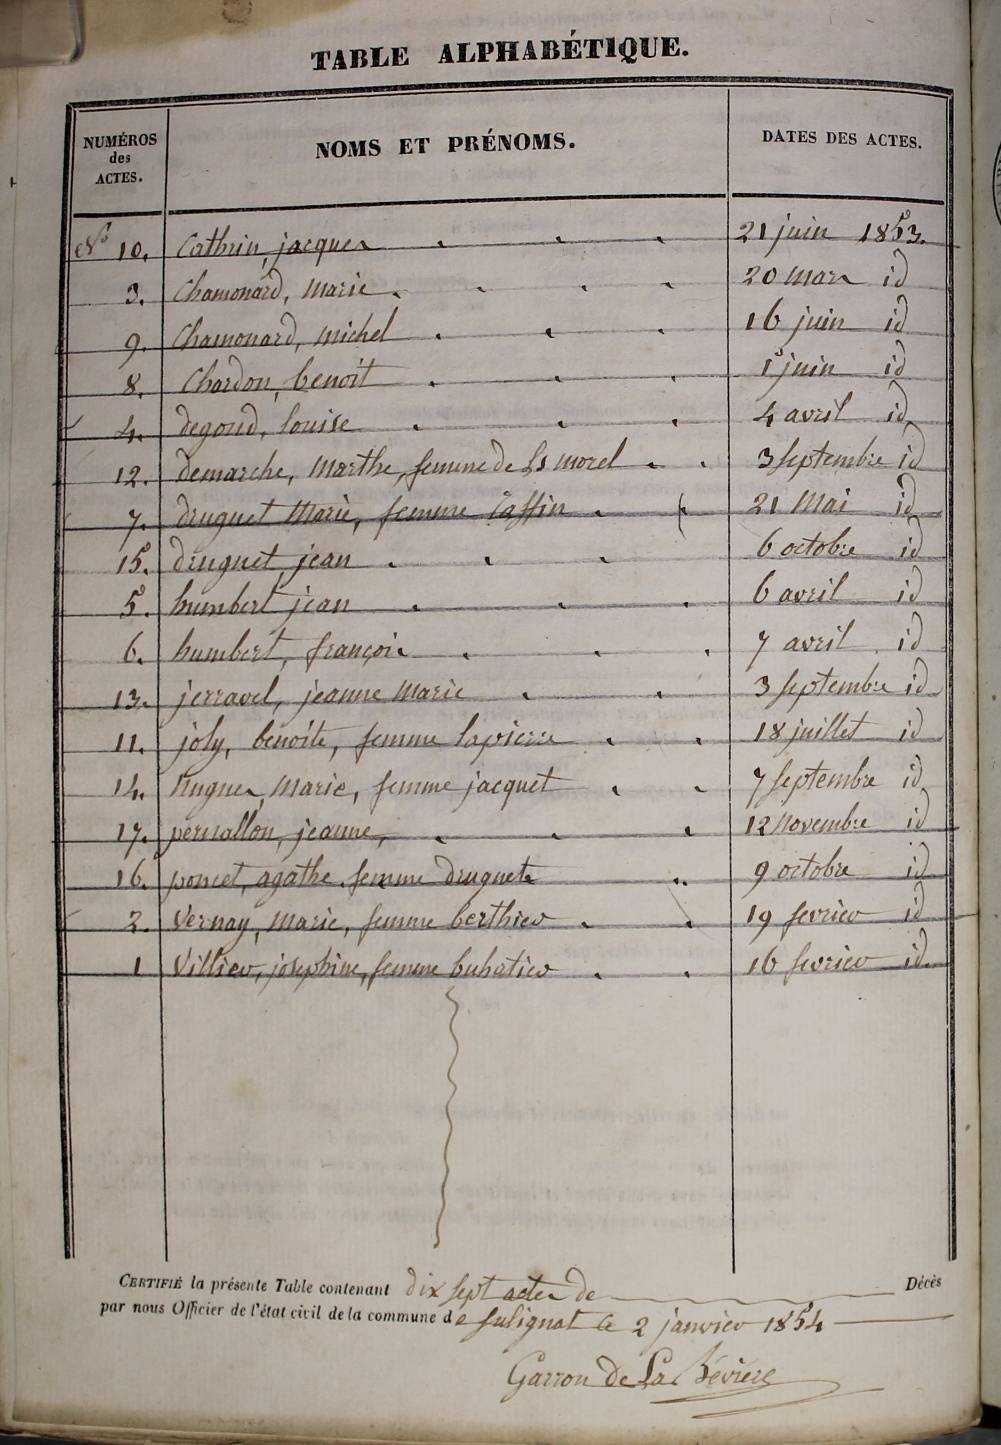 TABLE ALPHABÉTIQUE.
NUMÉROS des ACTES. NOMS ET PRÉNOMS. DATES DES ACTES.
N° 10. Cathrin, jacques 21 juin 1853.
3. Chamonard, Marie 20 Mars id
9. Chamonard, michel 16 juin id
8. Chardon, benoit 1er juin id
4. degoud, louise 4 avril id
12. demarche, Marthe, femme de Ls morel 3 Septembre id
7. druguet Marie, femme Caffin 21 Mai id
15. druguet jean 6 octobre id
5. humbert jean 6 avril id
6. humbert, françois 7 avril id
13. jerravel, jeanne Marie 3 Septembre id
11. joly, benoite, femme lapierre 18 juillet id
14. Nugues, Marie, femme jacquet 7 Septembre id
17. pernallon, jeanne, 12 Novembre id
16. poncet, agathe femme druguet 9 octobre id
2. Vernay, Marie, femme berthier 19 fevrier id
1 Villier, josephine, femme buhatier 16 fevrier id.
CERTIFIÉ la présente Table contenant dix sept actes de Décès
par nous Officier de l'état civil de la commune de Sulignat le 2 janvier 1854
Garron de La Bévière